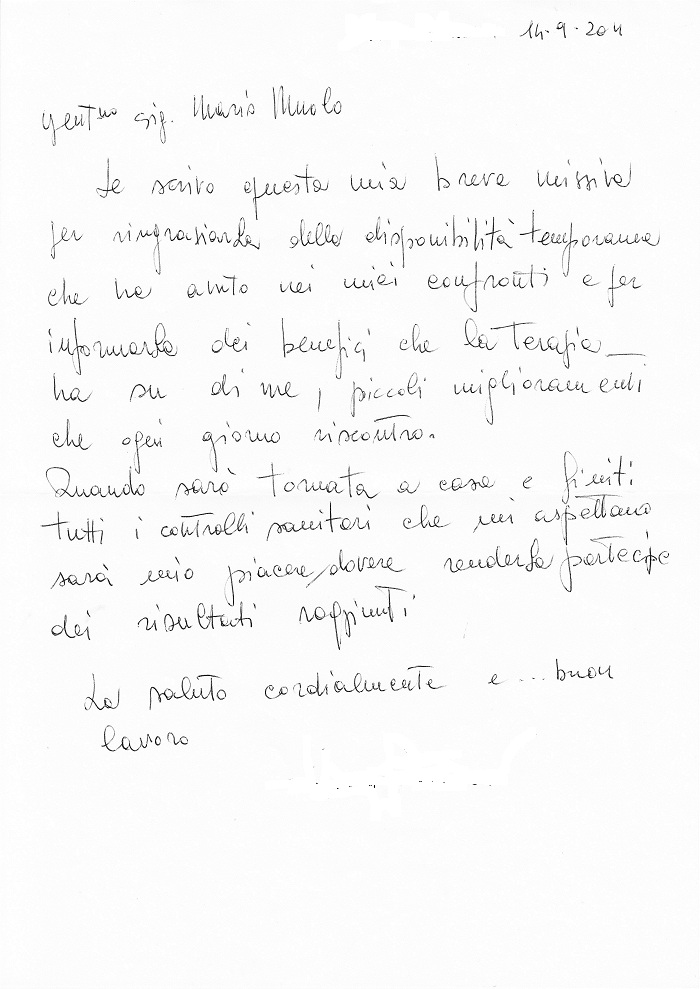 14.9.2011
Gent.mo Sig. Mario Muolo
Le scrivo questa mia breve missiva
per ringraziarLa della disponibilità temporanea
che ha avuto nei miei confronti e per
informarLa dei benefici che la terapia
ha su di me, piccoli miglioramenti
che ogni giorno riscontro.
Quando sarò tornata a casa e finiti
tutti i controlli sanitari che mi aspettano
sarà mio piacere/dovere renderLa partecipe
dei risultati raggiunti
La saluto cordialmente e ... buon
lavoro